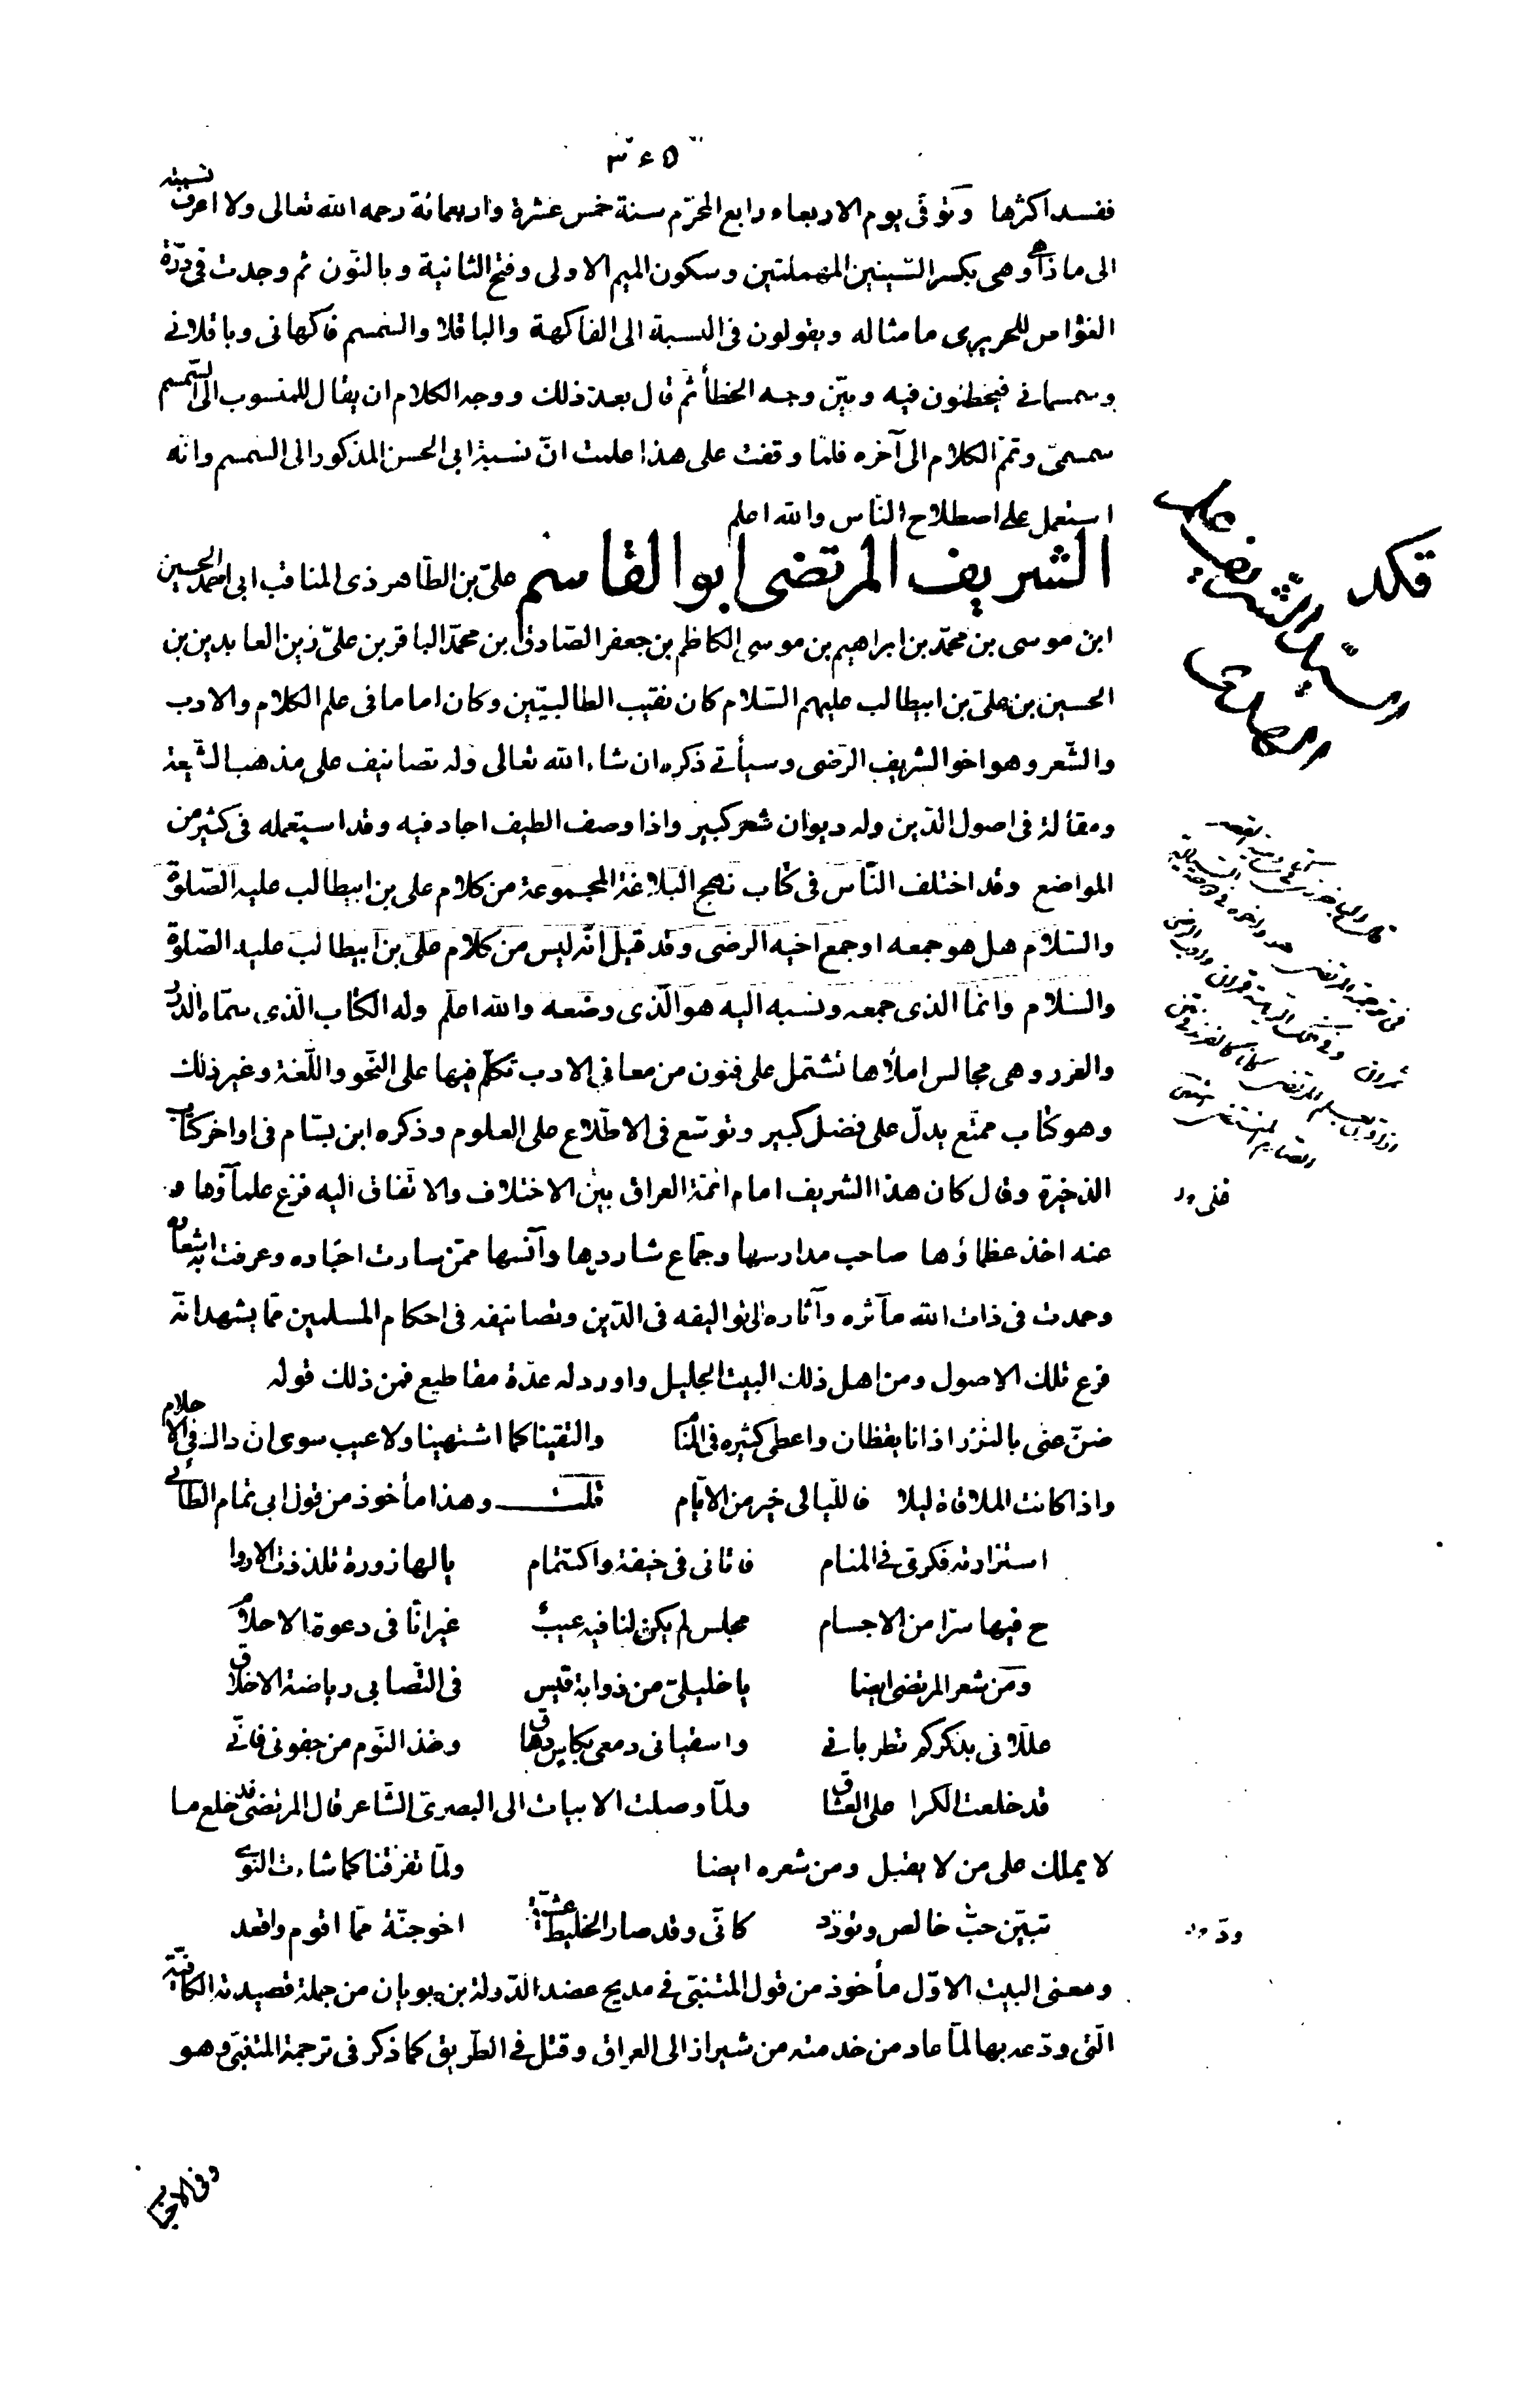 ٣٤٥
ففسد اكثرها وتوفّى يوم الاربعاء رابع المحرّم سنة خمس عشرة واربعمائة رحمه الله تعالى ولا اعرف نسبته
الى ماذا وهى بكسر السّينين المهملتين وسكون الميم الاولى وفتح الثانية وبالنّون ثم وجدت فى درّة
الغوّاص للحريرى ما مثاله ويقولون فى النسبة الى الفاكهة والباقلا والسمسم فاكهانى وباقلانى
وسمسمانى فيخطئون فيه وبيّن وجه الخطأ ثمّ قال بعد ذلك ووجه الكلام ان يقال للمنسوب الى السّمسم
سمسمىّ وتمّم الكلام الى آخره فلمّا وقفت على هذا علمت انّ نسبة ابى الحسن المذكور الى السمسم وانّه
استعمل على اصطلاح النّاس والله اعلم
الشريف المرتضى ابو القاسم علىّ بن الطّاهر ذى المناقب ابى احمد الحسين
ابن موسى بن محمّد بن ابراهيم بن موسى الكاظم بن جعفر الصّادق بن محمّد الباقر بن علىّ زين العابدين بن
الحسين بن علىّ بن ابيطالب عليهم السّلام كان نقيب الطالبيّين وكان اماما فى علم الكلام والادب
والشّعر وهو اخو الشريف الرّضى وسيأتى ذكره ان شاء الله تعالى وله تصانيف على مذهب الشّيعة
ومقالة فى اصول الدّين وله ديوان شعر كبير واذا وصف الطيف اجاد فيه وقد استعمله فى كثير من
المواضع وقد اختلف النّاس فى كتاب نهج البلاغة المجموعة من كلام على بن ابيطالب عليه الصّلوة
والسّلام هل هو جمعه او جمع اخيه الرضى وقد قيل انّه ليس من كلام علىّ بن ابيطالب عليه الصّلوة
والسّلام وانمّا الذى جمعه ونسبه اليه هو الّذى وضعه والله اعلم وله الكتاب الّذى سمّاه الدرر
والغرر وهى مجالس املاها تشتمل على فنون من معانى الادب تكلّم فيها على النّحو واللّغة وغير ذلك
وهو كتاب ممتّع يدلّ على فضل كبير وتوسّع فى الاطّلاع على العلوم وذكره ابن بسّام فى اواخر كتاب
الذخيرة وقال كان هذا الشريف امام ائمّة العراق بين الاختلاف والاتّفاق اليه فزع علمآؤها و
عنه اخذ عظماؤها صاحب مدارسها وجمّاع شاردها وآنسها ممّن سارت اخباره وعرفت به اشعاره
وحمدت فى ذات الله مآثره وآثاره الى تواليفه فى الدّين وتصانيفه فى احكام المسلمين ممّا يشهد انّه
فرع تلك الاصول ومن اهل ذلك البيت الجليل واورد له عدّة مقاطيع فمن ذلك قوله
ضنّ عنى بالنزر اذ انا يقظان واعطى كثيره فى المنا والتقينا كما اشتهينا ولا عيب سوى ان ذالك فى الاحلام
واذا كانت الملاقاة ليلا فالليالى خير من الايّام قلت وهذا مأخوذ من قول ابى تمام الطّائى
استزارته فكرتى فى المنام فاتانى فى خيفة واكتتام يالها زورة تلذذت الاروا
ح فيها سرّا من الاجسام مجلس لم يكن لنا فيه عيبٌ غير انّا فى دعوة الاحلام
ومن شعر المرتضى ايضا يا خليلىّ من ذوابة قيس فى التّصابى رياضة الاخلاق
علّلانى بذكركم تطربانى واسقيانى دمعى بكاس دهاق وخذا النّوم من جفونى فانّى
قد خلعت الكرا على العشّاق ولمّا وصلت الابيات الى البصرىّ الشّاعر قال المرتضى قد خلع ما
لا يملك على من لا يقبل ومن شعره ايضا ولمّا تفرّقنا كما شاءت النّوى
تبيّن حبّ خالص وتودّد كانّى وقد صار الخليط عشيّة اخو جنّة ممّا اقوم واقعد
ومعنى البيت الاوّل مأخوذ من قول المتنبّى فى مديح عضد الدّولة بن بويان من جملة قصيدته الكافيّة
الّتى ودّعه بها لمّا عاد من خدمته من شيراز الى العراق وقتل فى الطّريق كما ذكر فى ترجمة المتنبّى وهو
وفى الاحباب
ودّ